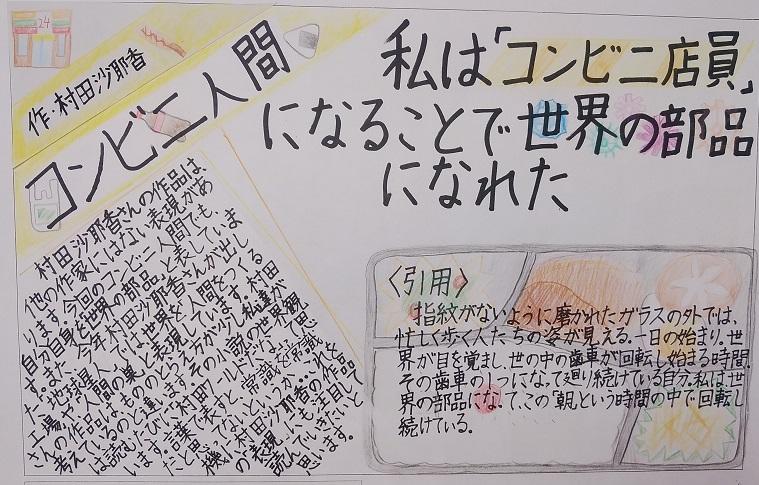 24
作・村田沙耶香
コンビニ人間
私は「コンビニ店員」
になることで世界の部品
になれた
村田沙耶香さんの作品は、
他の作家にはない表現があ
ります。今回のコンビニ人間でも、
自分自身を世界の部品と表していま
す。また、今年村田沙耶香さんが出し
た「地球星人」では世界を「人間をつくる
工場」や「人間の巣」と表現しています。村田
さんの作品はもののとらえ方が少し私達が
考えているのと違います。その小説の世界観
は読むたびに「村田ワールドだな」
います。言葉で表すと、常識を常識
だと思ってないというか…これを
機に村田沙耶香の作品
の表現にも注目して
読んでいきたいと
思います。
〈引用〉
指紋がないように磨かれたガラスの外では、
忙しく歩く人たちの姿が見える。一日の始まり。世
界が目を覚まし、世の中の歯車が回転し始まる時間。
その歯車の1つになって廻り続けている自分。私は、世
界の部品になって、この「朝」という時間の中で回転し
続けている。